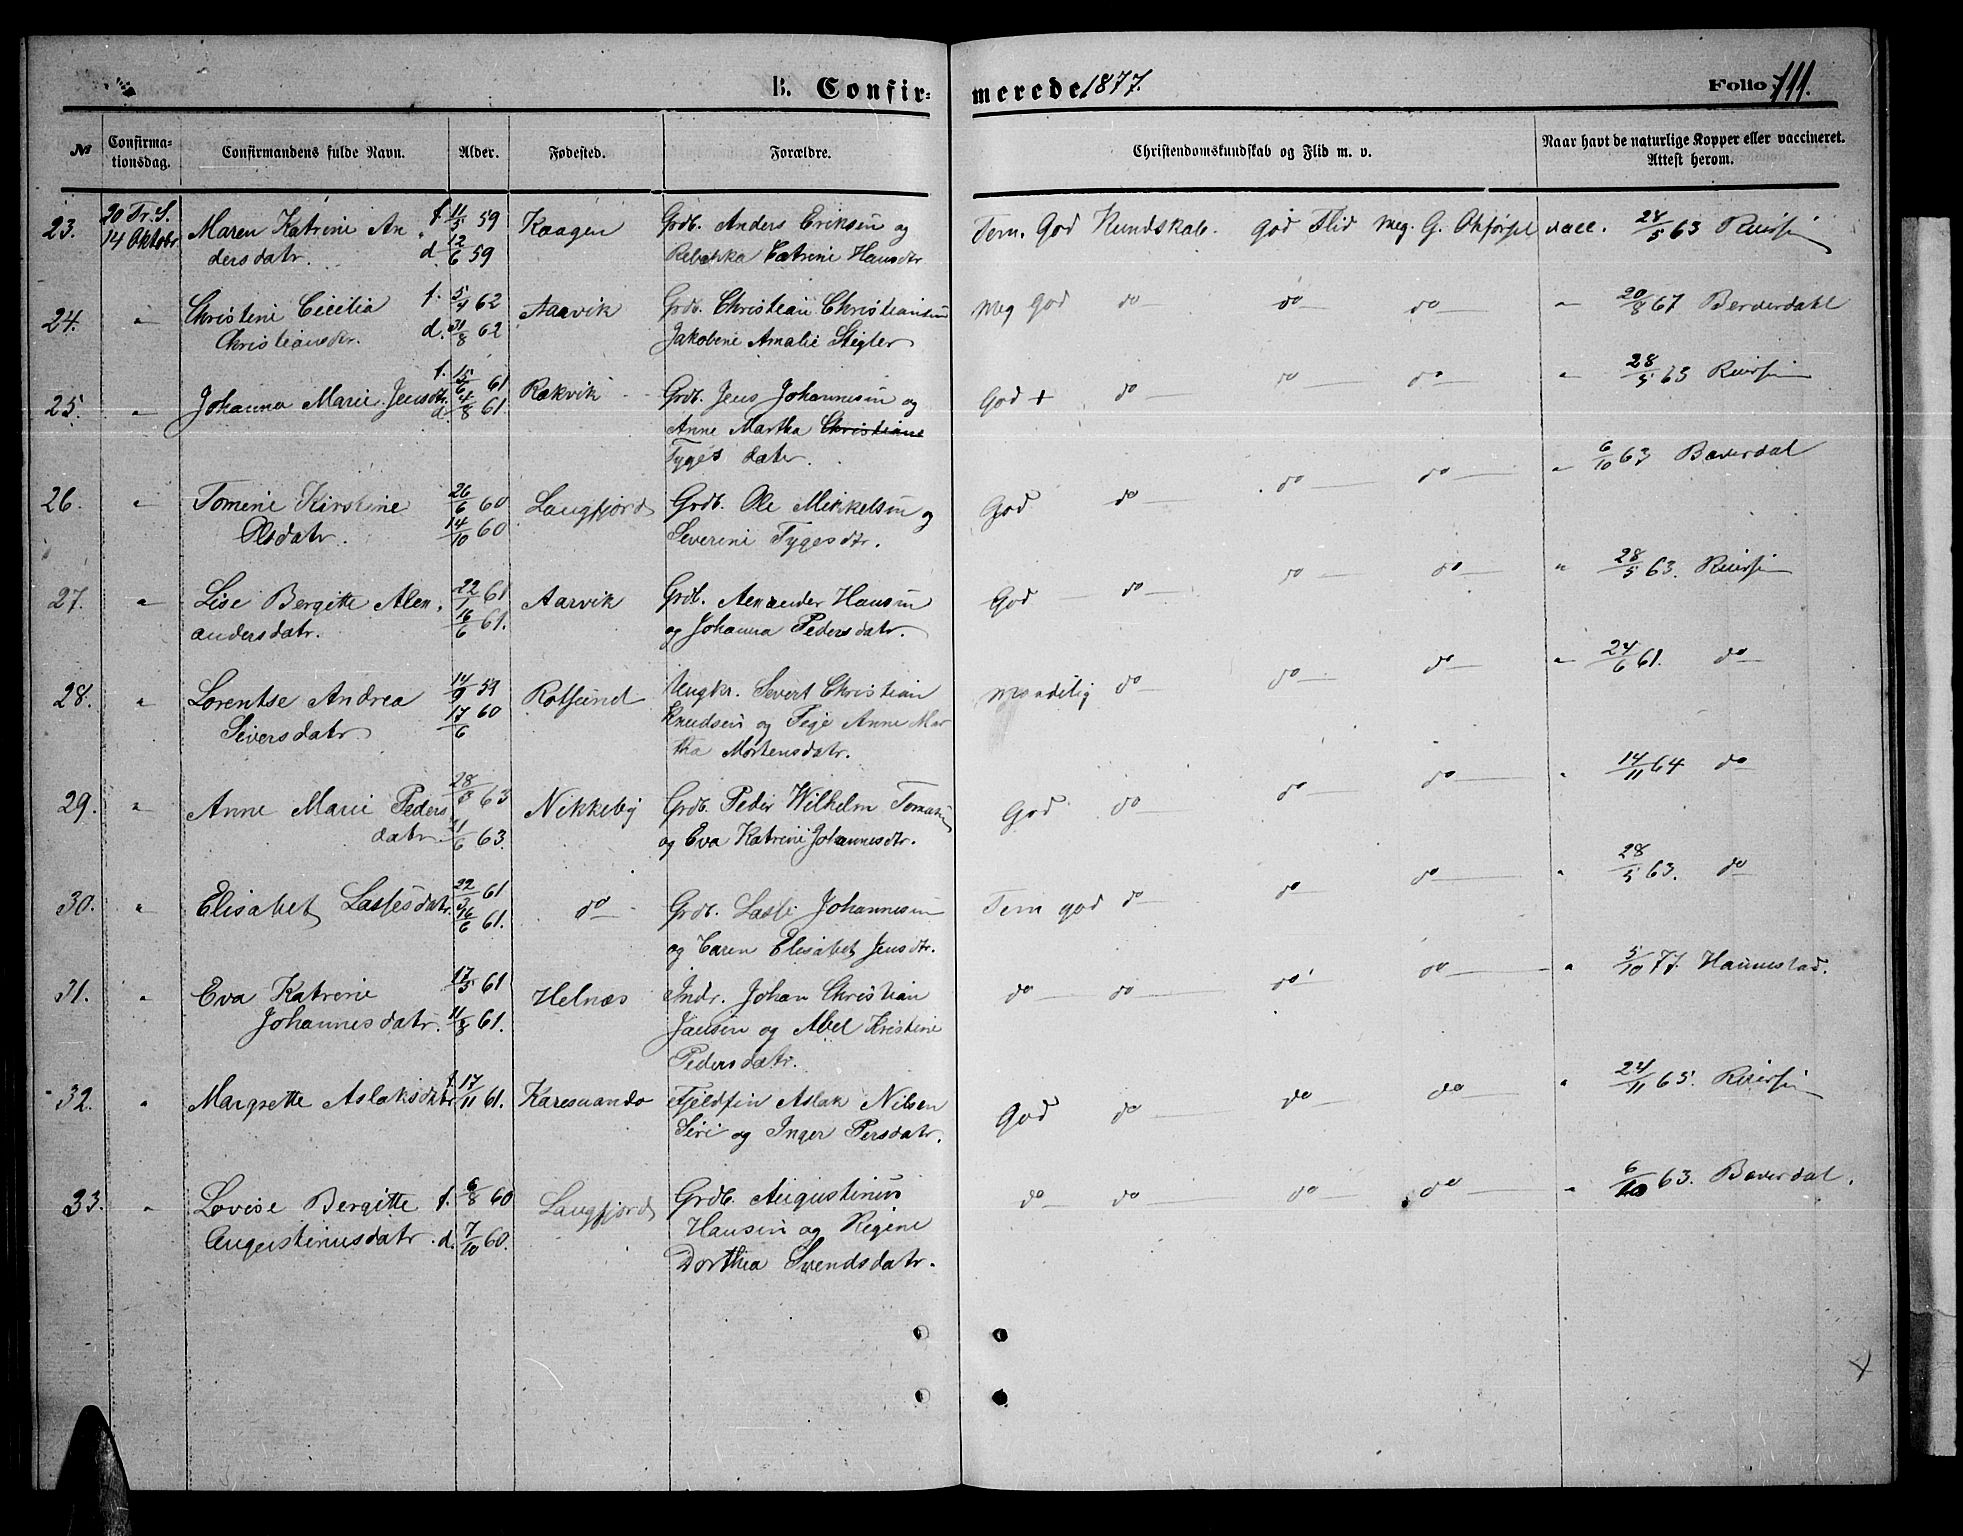 B. Confirmerede 1877. Folio 111.
№ Confirmationsdag. Confirmandens fulde Navn. Alder. Fødested. Forældre. Christendomskundskab og Flid m. v. Naar havt de naturlige Kopper eller vaccineret. Attest herom.
23. 20 Tr. S. Maren Katrine An f. 11/5 59 Kaagen Grdb. Anders Eriksen og Tem. God Kundskab. God Flid Meg. G. Opførsel vacc. 24/5 63
14 Oktobr dersdatr. d. 12/6 59 Rebekka Catrine Hansdtr
24. " Christine Cecilia f. 5/4 62 Aarvik Grdb. Christian Christiansen Meg God do do do " 20/8 67
Christiansdtr. d. 31/8 62 Jakobine Amalie Stigler
25. " Johanna Marie Jensdtr. f. 15/6 61 Rakvik Grdb. Jens Johannesen og God + do do do " 28/5 63
d. 4/8 61. Anne Martha Christiane
Tyges datr.
26. " Tomine Kirstine 26/6 60 Langfjord Grdb. Ole Mikkelsen og God do do do " 6/10 63 Bæverdal
Olsdatr. 14/10 60 Severine Tygesdtr.
27. " Lise Bergitte Alex 22/1 61 Aarvik Grdb. Alexander Hansen God do do do " 28/5 63.
andersdatr. 16/6 61. og Johanna Pedersdatr.
28. " Lorentse Andrea 14/9 59 Rotsund Ungkr. Severt Christian Maadelig do do do " 24/6 61. do
Seversdatr. 17/6 60 Knudsen og Pige Anne Mar
tha Mortensdatr.
29. " Anne Marie Peders 63 Nikkeby Grdb. Peder Wilhelm Tomasen God do do do " 14/11 64 do
datr. 21/6 63. og Eva Katrine Johannesdtr.
30. " Elisabet Lassesdatr. 22/3 61 do Grdb. Lasse Johannesen Tem god do do do " 28/5 63. do
16/6 61. og Caren Elisabet Jensdtr.
31. " Eva Katrine 17/5 61 Helnæs Indr. Johan Christian do do do do " 5/10 77 Hannestad.
Johannesdatr. 11/8 61. Jansen og Abel Kristine
Pedersdatr.
32. " Margrette Aslaksdatr f. 17/11 61. Karesuando Fjeldfin Aslak Nilsen God do do do " 24/11 65.
Siri og Inger Persdatr.
33. " Lovise Bergitte f. 6/8 60 Langfjord Grdb. Augustinus do do do do " 6/10 63. Bæverdal.
Augustinusdatr. d. 7/10 60. Hansen og Regine
Dorthea Svendsdatr.